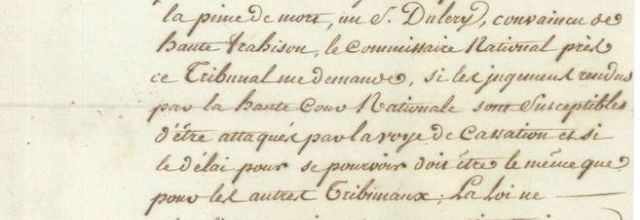 la peine de mort, un S. Dulery, convaincu de
haute trahison, le Commissaire National près
ce Tribunal me demande, si les jugemens rendus
par la haute Cour Nationale sont susceptibles
d'être attaqués par la voye de Cassation et si
le délai pour se pourvoir doit être le même que
pour les autres Tribunaux; La Loi ne